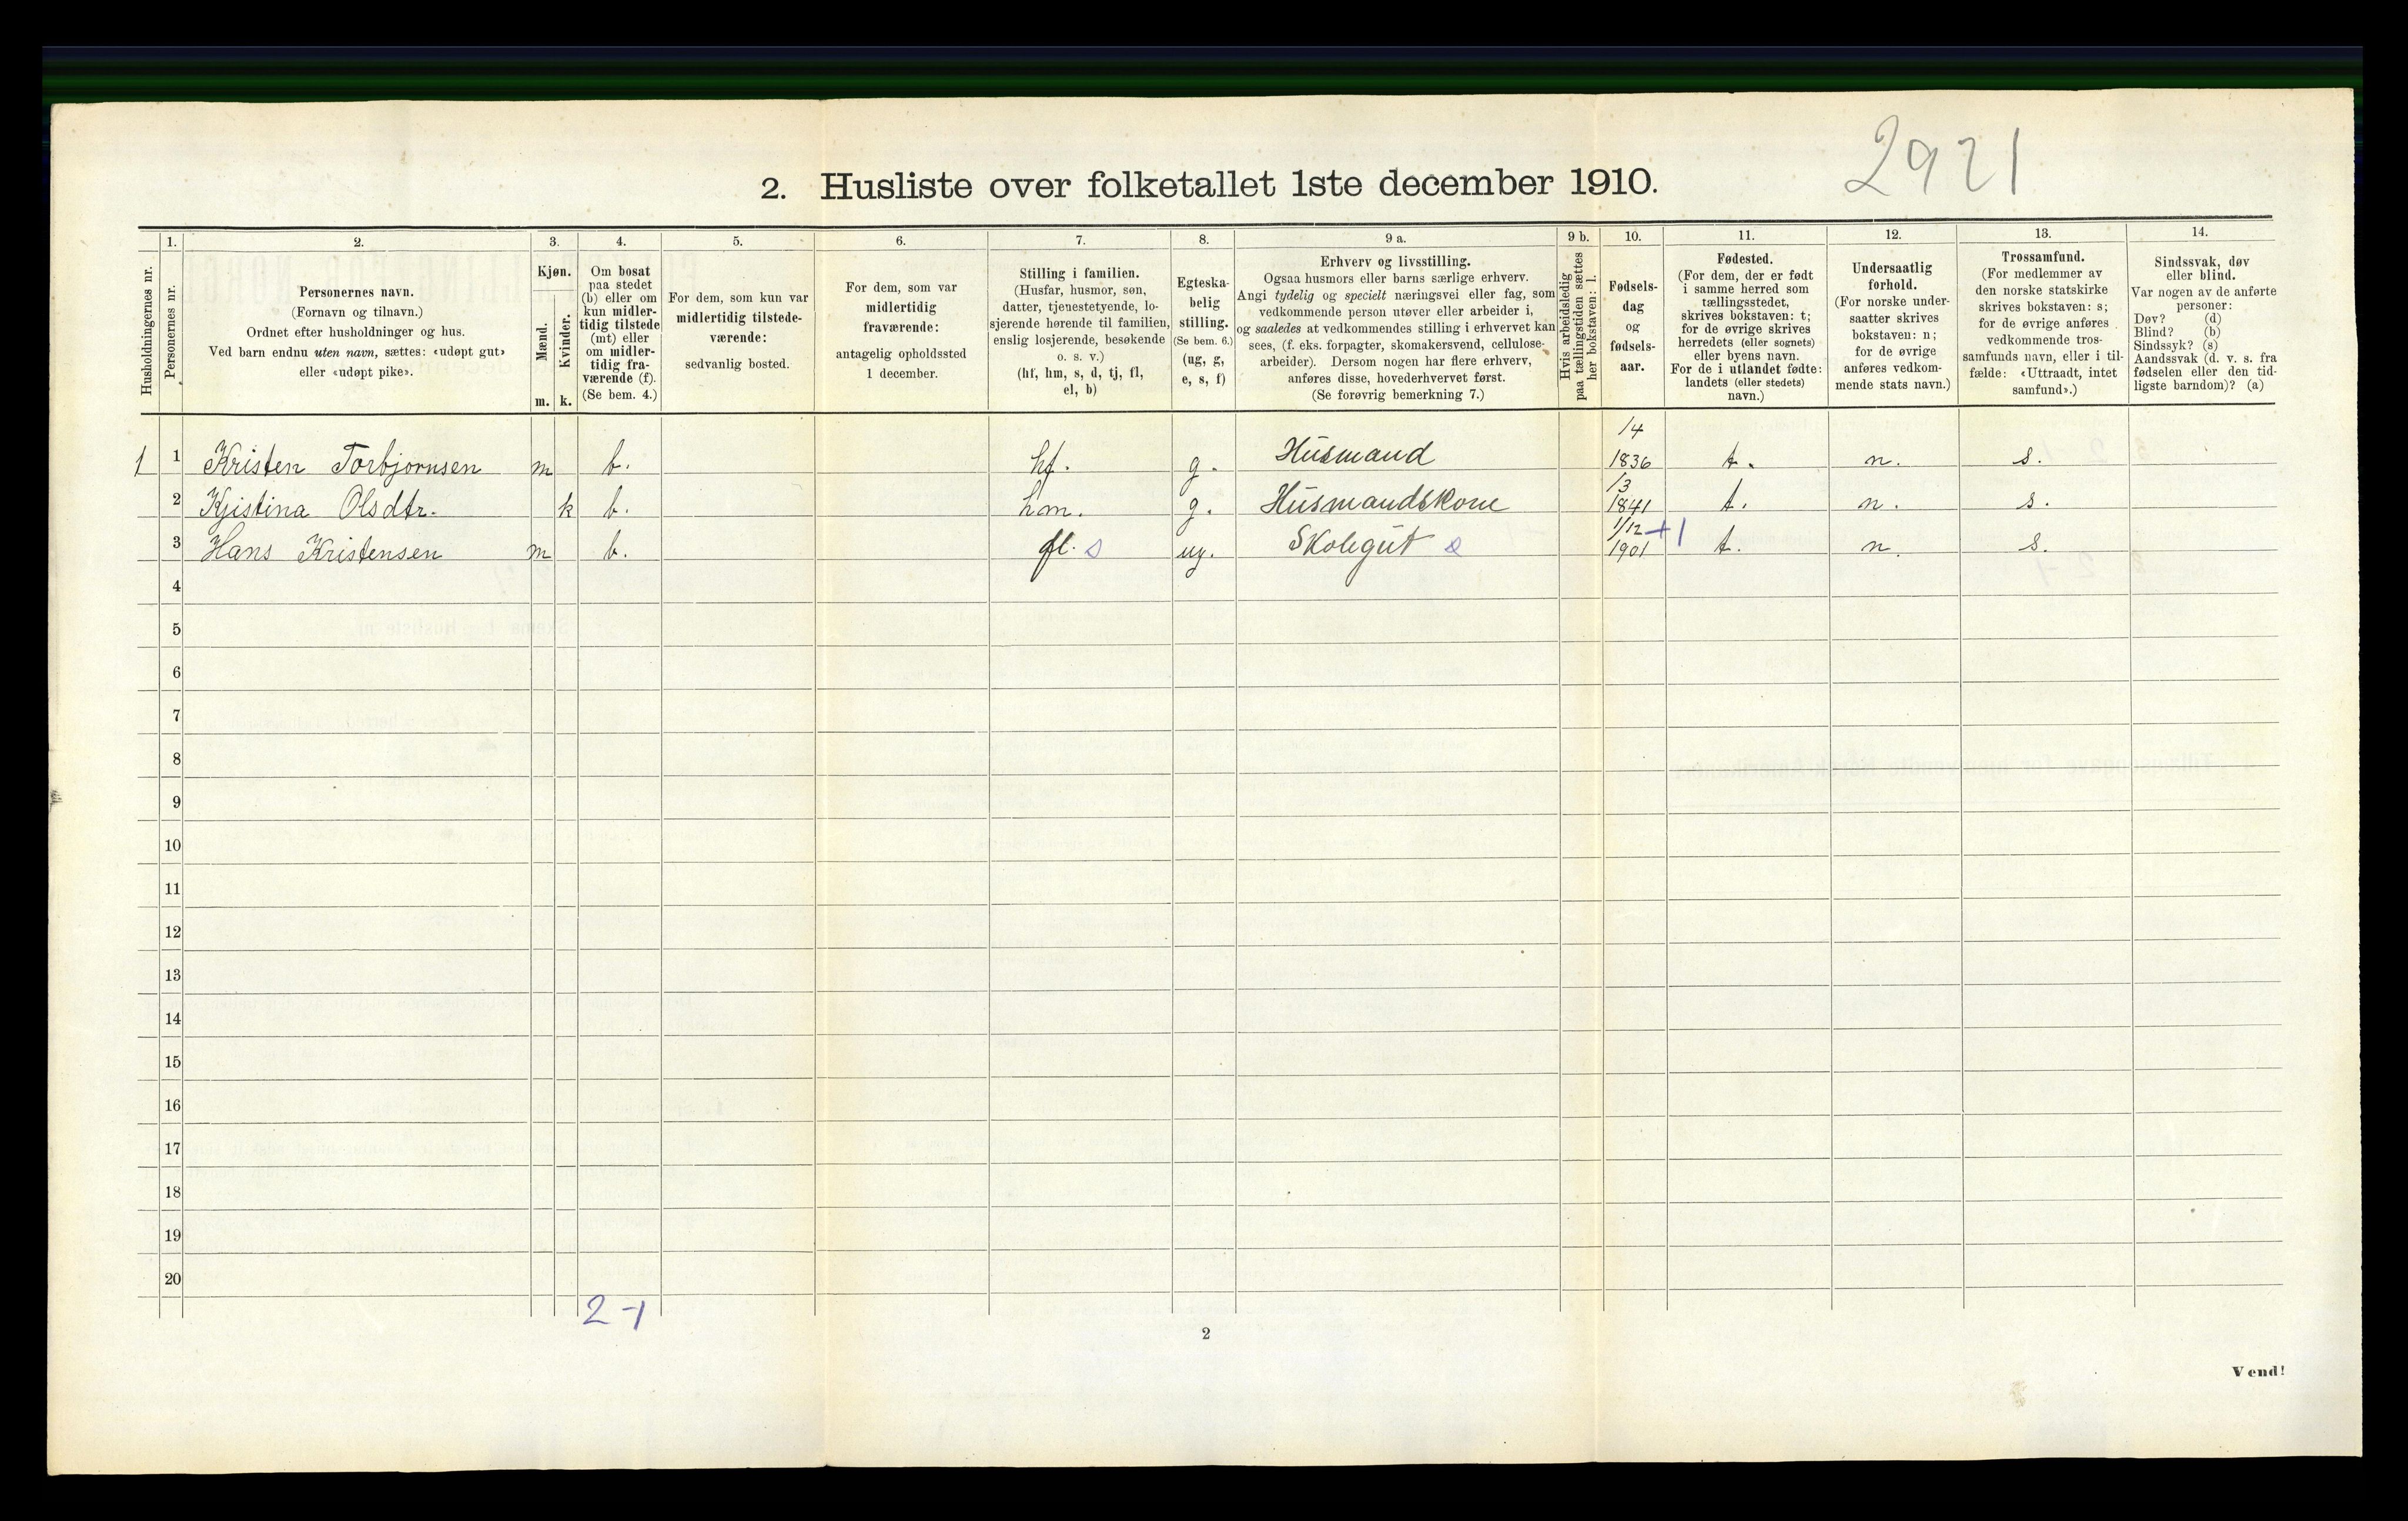 2921
2. Husliste over folketallet 1ste december 1910.
Husholdningernes nr.
1.
Personernes nr.
2.
Personernes navn.
(Fornavn og tilnavn.)
Ordnet efter husholdninger og hus.
Ved barn endnu uten navn, sættes: «udøpt gut»
eller «udøpt pike».
3.
Kjøn.
Mænd.
Kvinder.
m. k.
4.
Om bosat
paa stedet
(b) eller om
kun midler-
tidig tilstede
(mt) eller
om midler-
tidig fra-
værende (f).
(Se bem. 4.)
5.
For dem, som kun var
midlertidig tilstede-
værende:
sedvanlig bosted.
6.
For dem, som var
midlertidig
fraværende:
antagelig opholdssted
1 december.
7.
Stilling i familien.
(Husfar, husmor, søn,
datter, tjenestetyende, lo-
sjerende hørende til familien,
enslig losjerende, besøkende
o. s. v.)
(hf, hm, s, d, tj, fl,
el, b)
8.
Egteska-
belig
stilling.
(Se bem. 6.)
(ug, g,
e, s, f)
9 a.
Erhverv og livsstilling.
Ogsaa husmors eller barns særlige erhverv.
Angi tydelig og specielt næringsvei eller fag, som
vedkommende person utøver eller arbeider i,
og saaledes at vedkommendes stilling i erhvervet kan
sees, (f. eks. forpagter, skomakersvend, cellulose-
arbeider). Dersom nogen har flere erhverv,
anføres disse, hovederhvervet først.
(Se forøvrig bemerkning 7.)
9 b.
Hvis arbeidsledig
paa tællingstiden sættes
her bokstaven: l.
10.
Fødsels-
dag
og
fødsels-
aar.
11.
Fødested.
(For dem, der er født
i samme herred som
tællingsstedet,
skrives bokstaven: t;
for de øvrige skrives
herredets (eller sognets)
eller byens navn.
For de i utlandet fødte:
landets (eller stedets)
navn.)
12.
Undersaatlig
forhold.
(For norske under-
saatter skrives
bokstaven: n;
for de øvrige
anføres vedkom-
mende stats navn.)
13.
Trossamfund.
(For medlemmer av
den norske statskirke
skrives bokstaven: s;
for de øvrige anføres
vedkommende tros-
samfunds navn, eller i til-
fælde: «Uttraadt, intet
samfund».)
14.
Sindssvak, døv
eller blind.
Var nogen av de anførte
personer:
Døv? (d)
Blind? (b)
Sindssyk? (s)
Aandssvak (d. v. s. fra
fødselen eller den tid-
ligste barndom)? (a)
1 1 Kristen Torbjornsen m b. hf. g. Husmand 1/4 1836 t. n. s.
2 Kjistina Olsdtr. k b. hm. g. Husmandskone 1/3 1841 t. n. s.
3 Hans Kristensen m b. fl. s ug. Skolegut s 1/12 +1 1901 t. n. s.
4
5
6
7
8
9
10
11
12
13
14
15
16
17
18
19
20
2-1
2
Vend!